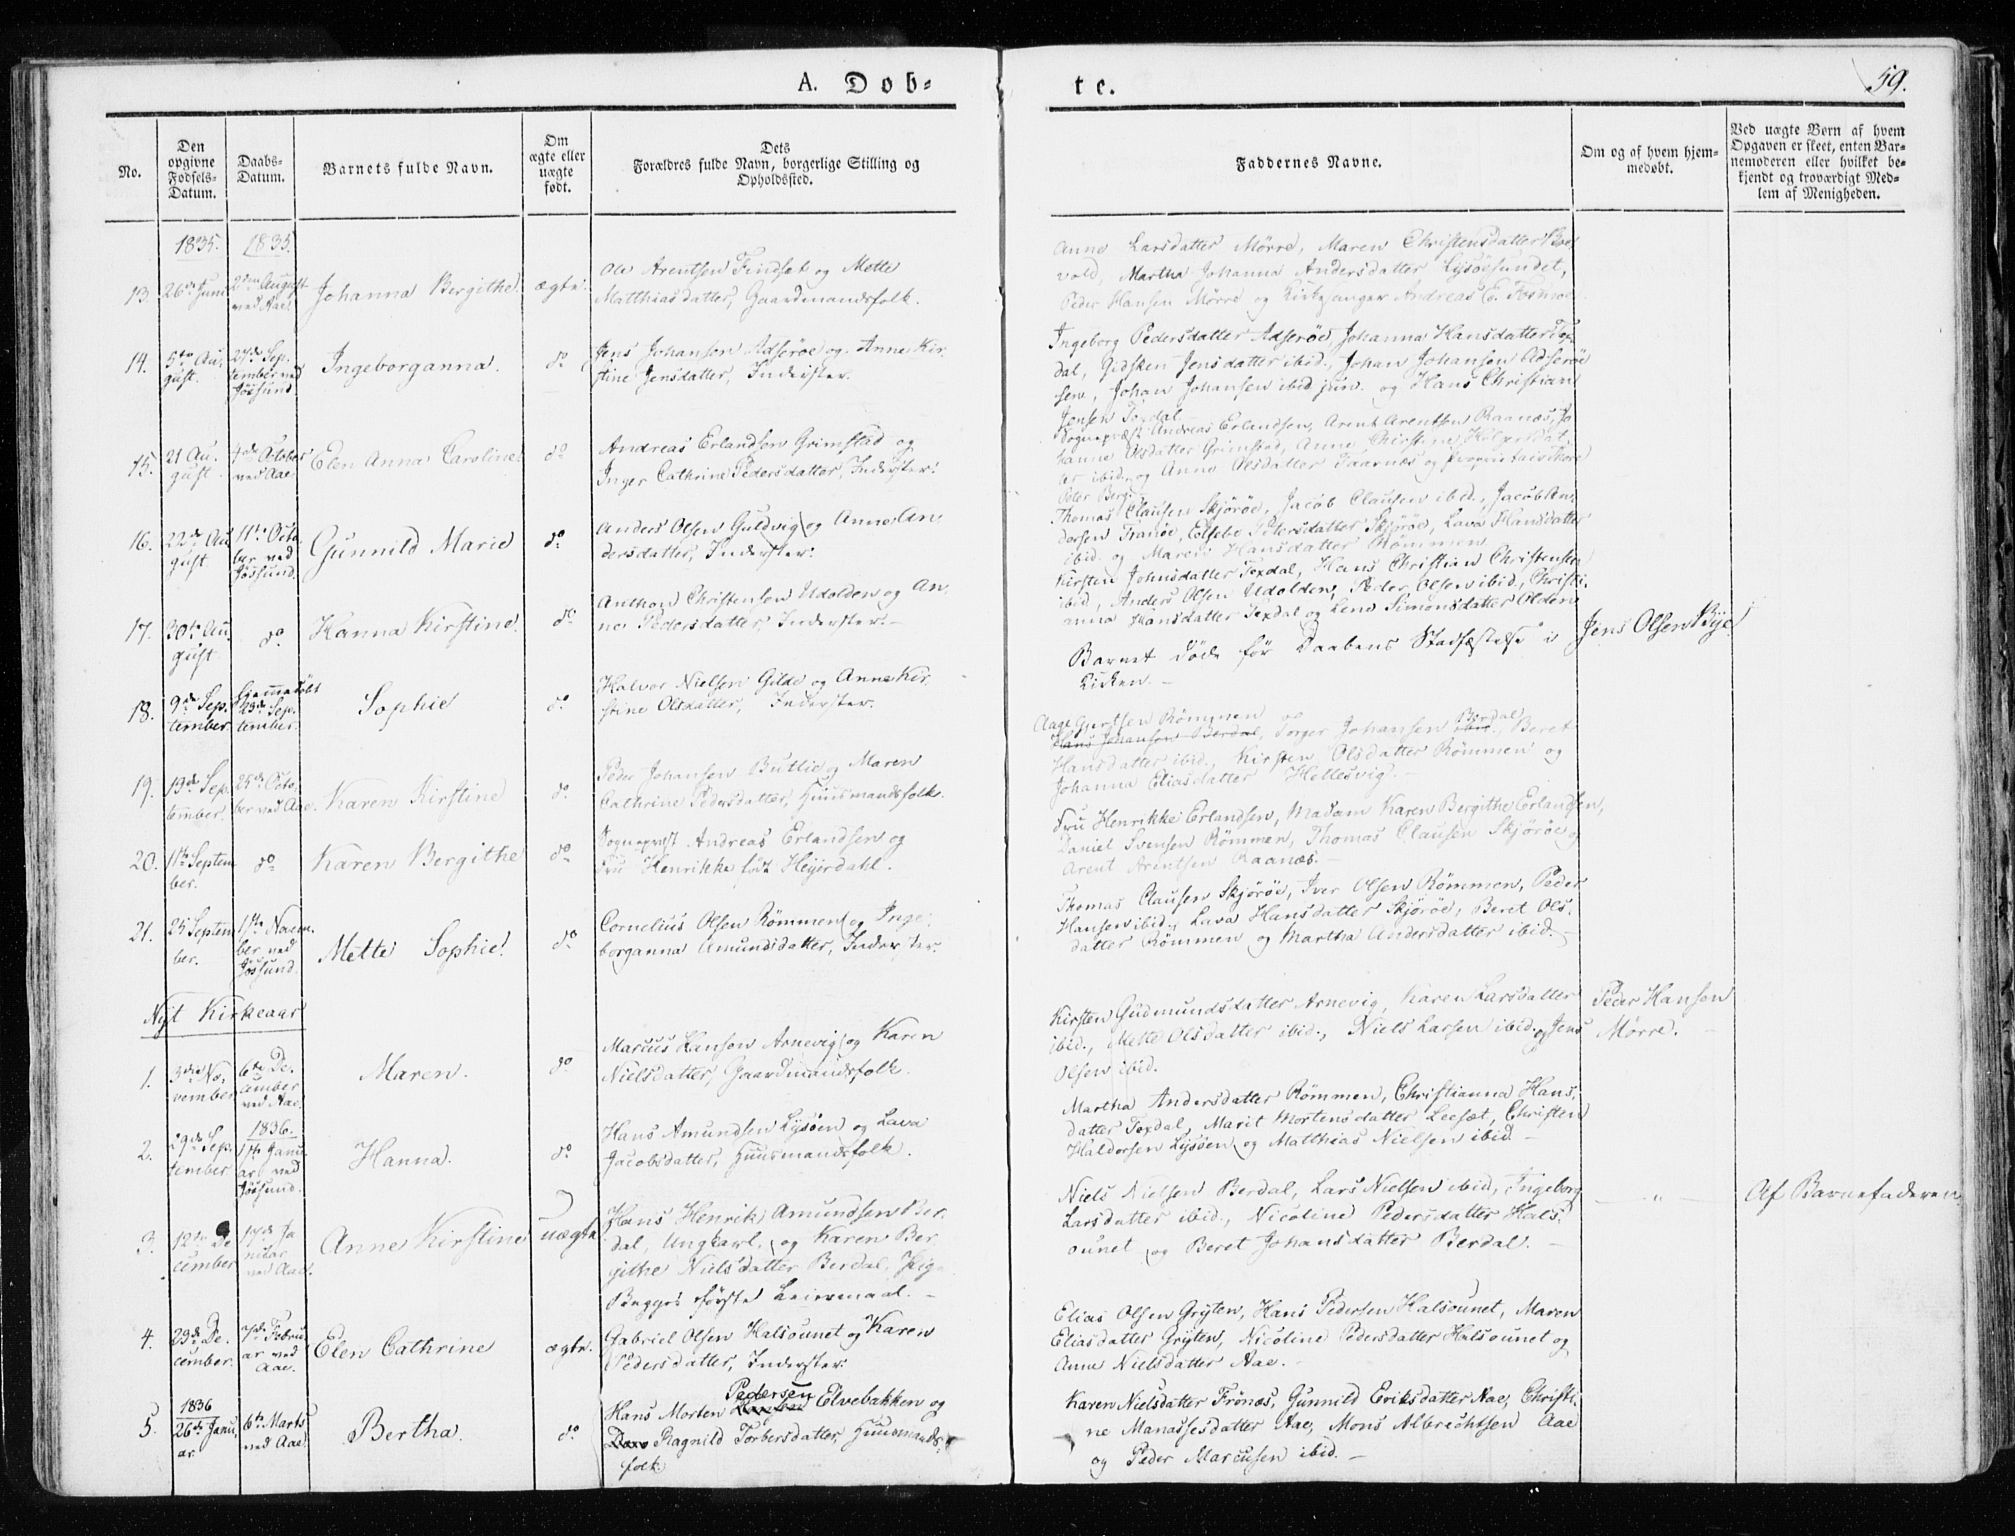 A. Døb-
te.
59.
No.
Den opgivne Fødsels-Datum.
Daabs-Datum.
Barnets fulde Navn.
Om ægte eller uægte født.
Dets
Forældres fulde Navn, borgerlige Stilling og
Opholdssted.
Faddernes Navne.
Om og af hvem hjem-
medøbt.
Ved uægte Børn af hvem
Opgaven er skeet, enten Bar-
nemoderen eller hvilket be-
kjendt og troværdigt Med-
lem af Menigheden.
1835.
1835.
13.
26de Juni
2den August
ved Aae.
Johanna Bergithe
ægte.
Ole Arentsen Findset og Mette
Matthiasdatter, Gaardmandsfolk.
Anne Larsdatter Mørre, Maren Christensdatter
vold, Martha Johanna Andersdatter Lysøesundet,
Peder Hansen Mørre og Kirkesanger Andreas E.
14.
5te Au-
gust.
27de Sep-
tember ved
Jøssund
Ingeborganna.
do
Jens Johansen Adserøe og Anne Kir-
stine Jensdatter, Inderster.
Ingeborg Pedersdatter Adserøe, Johanna Hansdatter Tox-
dal, Gidsken Jensdatter ibid., Johan Johansen Adserøe
sen, Johan Johansen ibid. jun. og Hans Christian
Jensen Toxdal.
15.
21 Au-
gust.
4de October
ved Aae.
Elen Anna Caroline
do
Andreas Erlandsen Grimstad og
Inger Cathrine Pedersdatter, Inderster.
Sognepræst Andreas Erlandsen, Arent Arentsen Raanæs, Jo-
hanne Olsdatter Grimstad, Anne Chirstine
ter ibid. og Anne Olsdatter Taarnæs og Proprietair Thore
Peter Berg.
16.
22de Au-
gust.
11te Octo-
ber ved
Jøssund.
Gunnild Marie
do
Anders Olsen Guldvig og Anne An-
dersdatter, Inderster.
Thomas Clausen Skjørøe, Jacob Clausen ibid., Jacob An-
dersen Tranøe, Elsebe Petersdatter Skjørøe, Lava Hansdatter
ibid. og Maren Hansdatter Rømmen
17.
30te Au-
gust.
do
Hanna Kirstine
do
Anthon Christensen Udolden og An-
ne Pedersdatter, Inderster.
Kirsten Johnsdatter Toxdal, Hans Christian Christensen
ibid., Anders Olsen Udolden, Peder Olsen ibid., Christi-
anna Hansdatter Toxdal og Lene Simonsdatter Olden
18.
9de Sep-
tember.
Hjemmedøbt
23de Sep-
tember.
Sophie
do
Halvor Nielsen Gilde og Anne Kir-
stine Olsdatter, Inderster.
Barnet døde før Daabens Stadfæstelse i
Kirken.
Jens Olsen Bye
19.
13de Sep-
tember.
25de Octo-
ber ved Aae.
Karen Kirstine
do
Peder Johansen Butlie og Maren
Cathrine Pedersdatter, Huusmandsfolk.
Aage Gjertsen Rømmen
Hans Johansen Berdal, Torger Johansen ibid. Berdal, Beret
Hansdatter ibid., Kirsten Olsdatter Rømmen og
Johanna Eliasdatter Hellesvig.
20.
11te Septem-
ber.
do
Karen Bergithe
do
Sognepræst Andreas Erlandsen og
Fru Henrikke født Heyerdahl.
Fru Henrikke Erlandsen, Madam Karen Bergithe Erlandsen,
Daniel Svensen Rømmen, Thomas Clausen Skjørøe og
Arent Arentsen Raanæs.
21.
25 Septem-
ber.
1ste Novem-
ber ved
Jøssund.
Mette Sophie
do
Cornelius Olsen Rømmen og Inge-
borganna Amundsdatter, Inderster.
Thomas Clausen Skjørøe, Iver Olsen Rømmen, Peder
Hansen ibid., Lava Hansdatter Skjørøe, Beret Ols-
datter Rømmen og Martha Andersdatter ibid.
Nyt Kirkeaar
1.
3die No-
vember
6te De-
cember
ved Aae.
Maren.
do
Marcus Hansen Arnevig og Karen
Nielsdatter, Gaardmandsfolk.
Kirsten Gudmundsdatter Arnevig, Karen Larsdatter
ibid., Mette Olsdatter ibid., Niels Larsen ibid. og Jens
Olsen ibid.
Peder Hansen
Mørre.
2.
29de Sep-
tember
1836.
1ste Janu-
ar ved
Jøssund.
Hanna.
do
Hans Amundsen Lysøen og Lava
Jacobsdatter, Huusmandsfolk.
Martha Andersdatter Rømmen, Christianna Hans-
datter Toxdal, Marit Mortensdatter Leesæt, Christen
Haldorsen Lysøen og Matthias Nielsen ibid.
3.
12te De-
cember
17de Ja-
nuar
ved Aae.
Anne Kirstine
uægte
Hans Henrik Amundsen Ber-
dal, Ungkarl, og Karen Ber-
githe Nielsdatter Berdal, Pige
Begges første Leiermaal.
Niels Nielsen Berdal, Lars Nielsen ibid, Ingeborg
Larsdatter ibid., Nicoline Pedersdatter Hals-
ounet og Beret Johansdatter Berdal.
— „ —
Af Barnefaderen
4.
29de De-
cember.
7de Febru-
ar ved
Aae.
Elen Cathrine
ægte.
Gabriel Olsen Halsounet og Karen
Pedersdatter, Inderster.
Elias Olsen Gryten, Hans Pedersen Halsounet, Maren
Eliasdatter Gryten, Nicoline Pedersdatter Halsounet og
Anne Nielsdatter Aae.
5.
1836
26de Janu-
ar.
6te Marts
ved Aae.
Bertha.
do
Pedersen
Hans Morten Hansen Elvebakken og
Ragnild Torbersdatter, Huusmands-
folk.
Karen Nielsdatter Frønæs, Gunnild Eriksdatter Aae, Christi-
ne Manassesdatter Aae, Mons Albrechtsen Aae
og Peder Marcusen ibid.